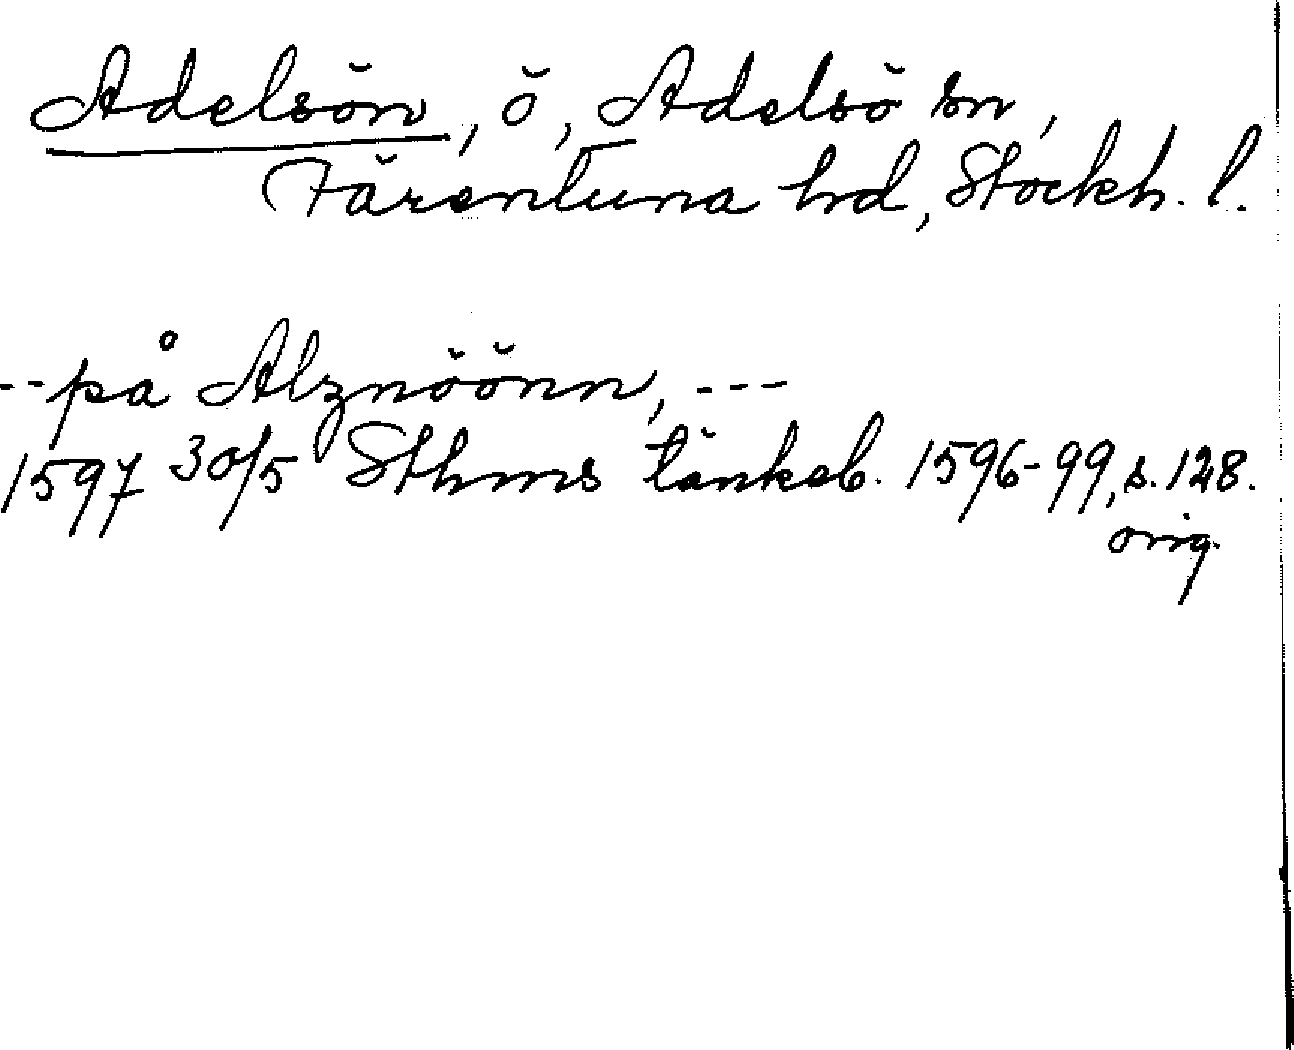 Adelsön, ö, Adelsö sn,
Färentuna hd, Stockh. l.
--på Alznöönn, ---
1597 30/5 Sthms tänkeb. 1596-99, s. 128.
orig.